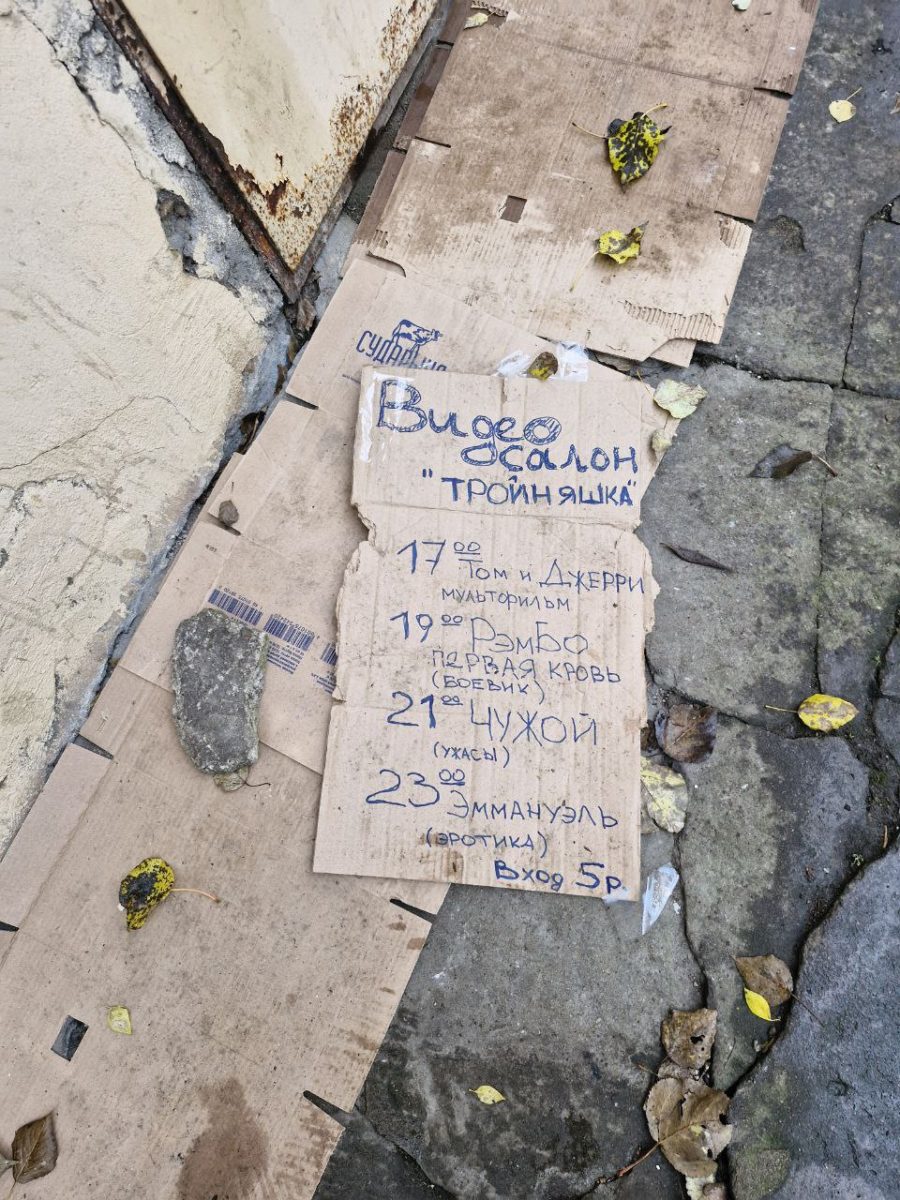 Видео
салон
"ТРОЙНЯШКА"
17 00 Том и Джерри
мультофильм
19 00 Рэмбо
первая кровь
(боевик)
21 00 ЧУЖОЙ
(ужасы)
23 00 Эммануэль
(эротика)
Вход 5р.